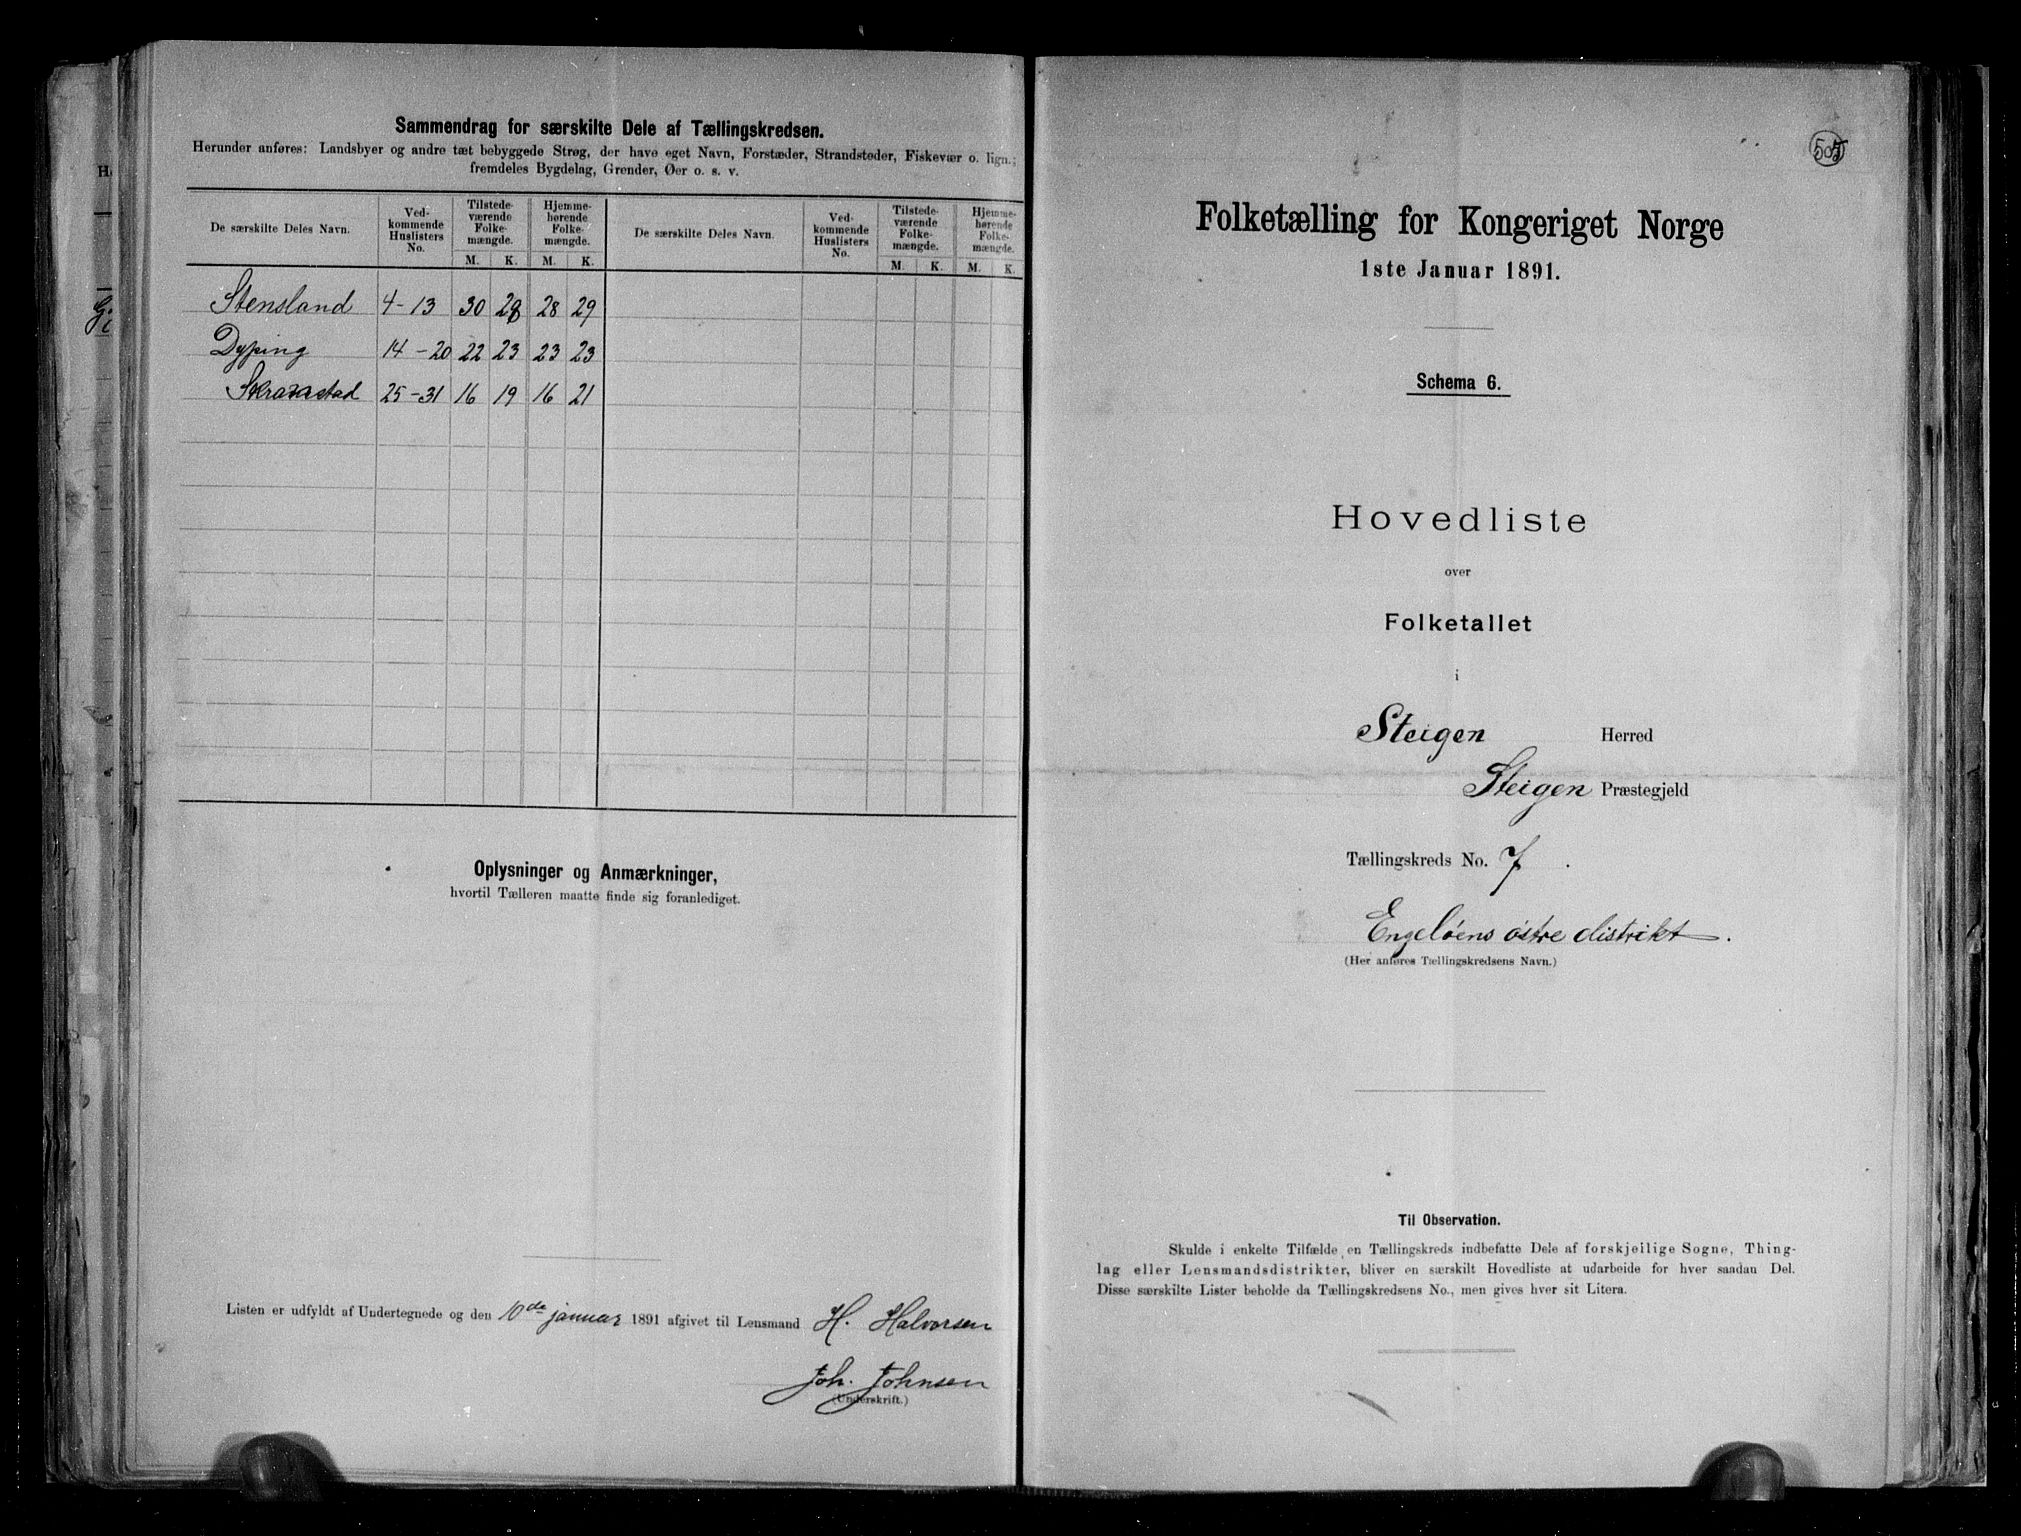 Sammendrag for særskilte Dele af Tællingskredsen.
Herunder anføres: Landsbyer og andre tæt bebyggede Strøg, der have eget Navn, Forstæder, Strandsteder, Fiskevær o. lign.;
fremdeles Bygdelag, Grender, Øer o. s. v.
De særskilte Deles Navn. Ved-kommende Huslisters No. Tilstede-værende Folke-mængde. Hjemme-hørende Folke-mængde. De særskilte Deles Navn. Ved-kommende Huslisters No. Tilstede-værende Folke-mængde. Hjemme-hørende Folke-mængde.
M. K. M. K. M. K. M. K.
Stensland 4-13 30 28 28 29
Dyping 14-20 22 23 23 23
Skranstad 25-31 16 19 16 21
Oplysninger og Anmærkninger,
hvortil Tælleren maatte finde sig foranlediget.
Listen er udfyldt af Undertegnede og den 10de januar 1891 afgivet til Lensmand H. Halvorsen
Joh. Johnsen
(Underskrift.)
505
Folketælling for Kongeriget Norge
1ste Januar 1891.
Schema 6.
Hovedliste
over
Folketallet
i
Steigen Herred
Steigen Præstegjeld
Tællingskreds No. 7.
Engeløens østre distrikt.
(Her anføres Tællingskredsens Navn.)
Til Observation.
Skulde i enkelte Tilfælde en Tællingskreds indbefatte Dele af forskjellige Sogne, Thing-
lag eller Lensmandsdistrikter, bliver en særskilt Hovedliste at udarbeide for hver saadan Del.
Disse særskilte Lister beholde da Tællingskredsens No., men gives hver sit Litera.